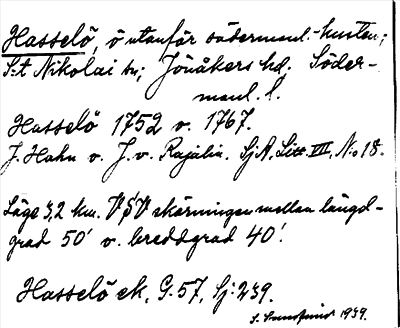 Hasselö, ö utanför södermanl.-kusten;
S:t Nikolai sn; Jönåkers hd, Söder-
manl. l.
Hasselö 1752 o. 1767.
J. Hahn o. J. v. Rajalin. SjA, Litt VIII, No 18.
Läge 3,2 km. V§V skärningen mellan längd-
grad 50' o. breddgrad 40'.
Hasselö ek. G:57, Sj:239.
1939.